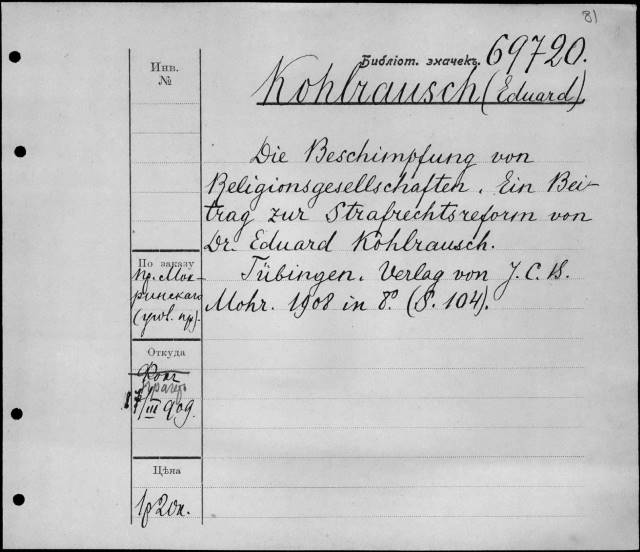 81
Библіот. значекъ. 69720.
Инв.
№
Kohlrausch (Eduard)
Die Beschimpfung von
Religionsgesellschaften. Ein Bei-
trag zur Strafrechtsreform von
Dr. Eduard Kohlrausch.
Tübingen. Verlag von J. C. B.
Mohr. 1908 in 8° (S. 104).
По заказу
пр. Мок-
ринскаго
(угол. пр).
Откуда
III 909.
Цѣна
1р 20к.